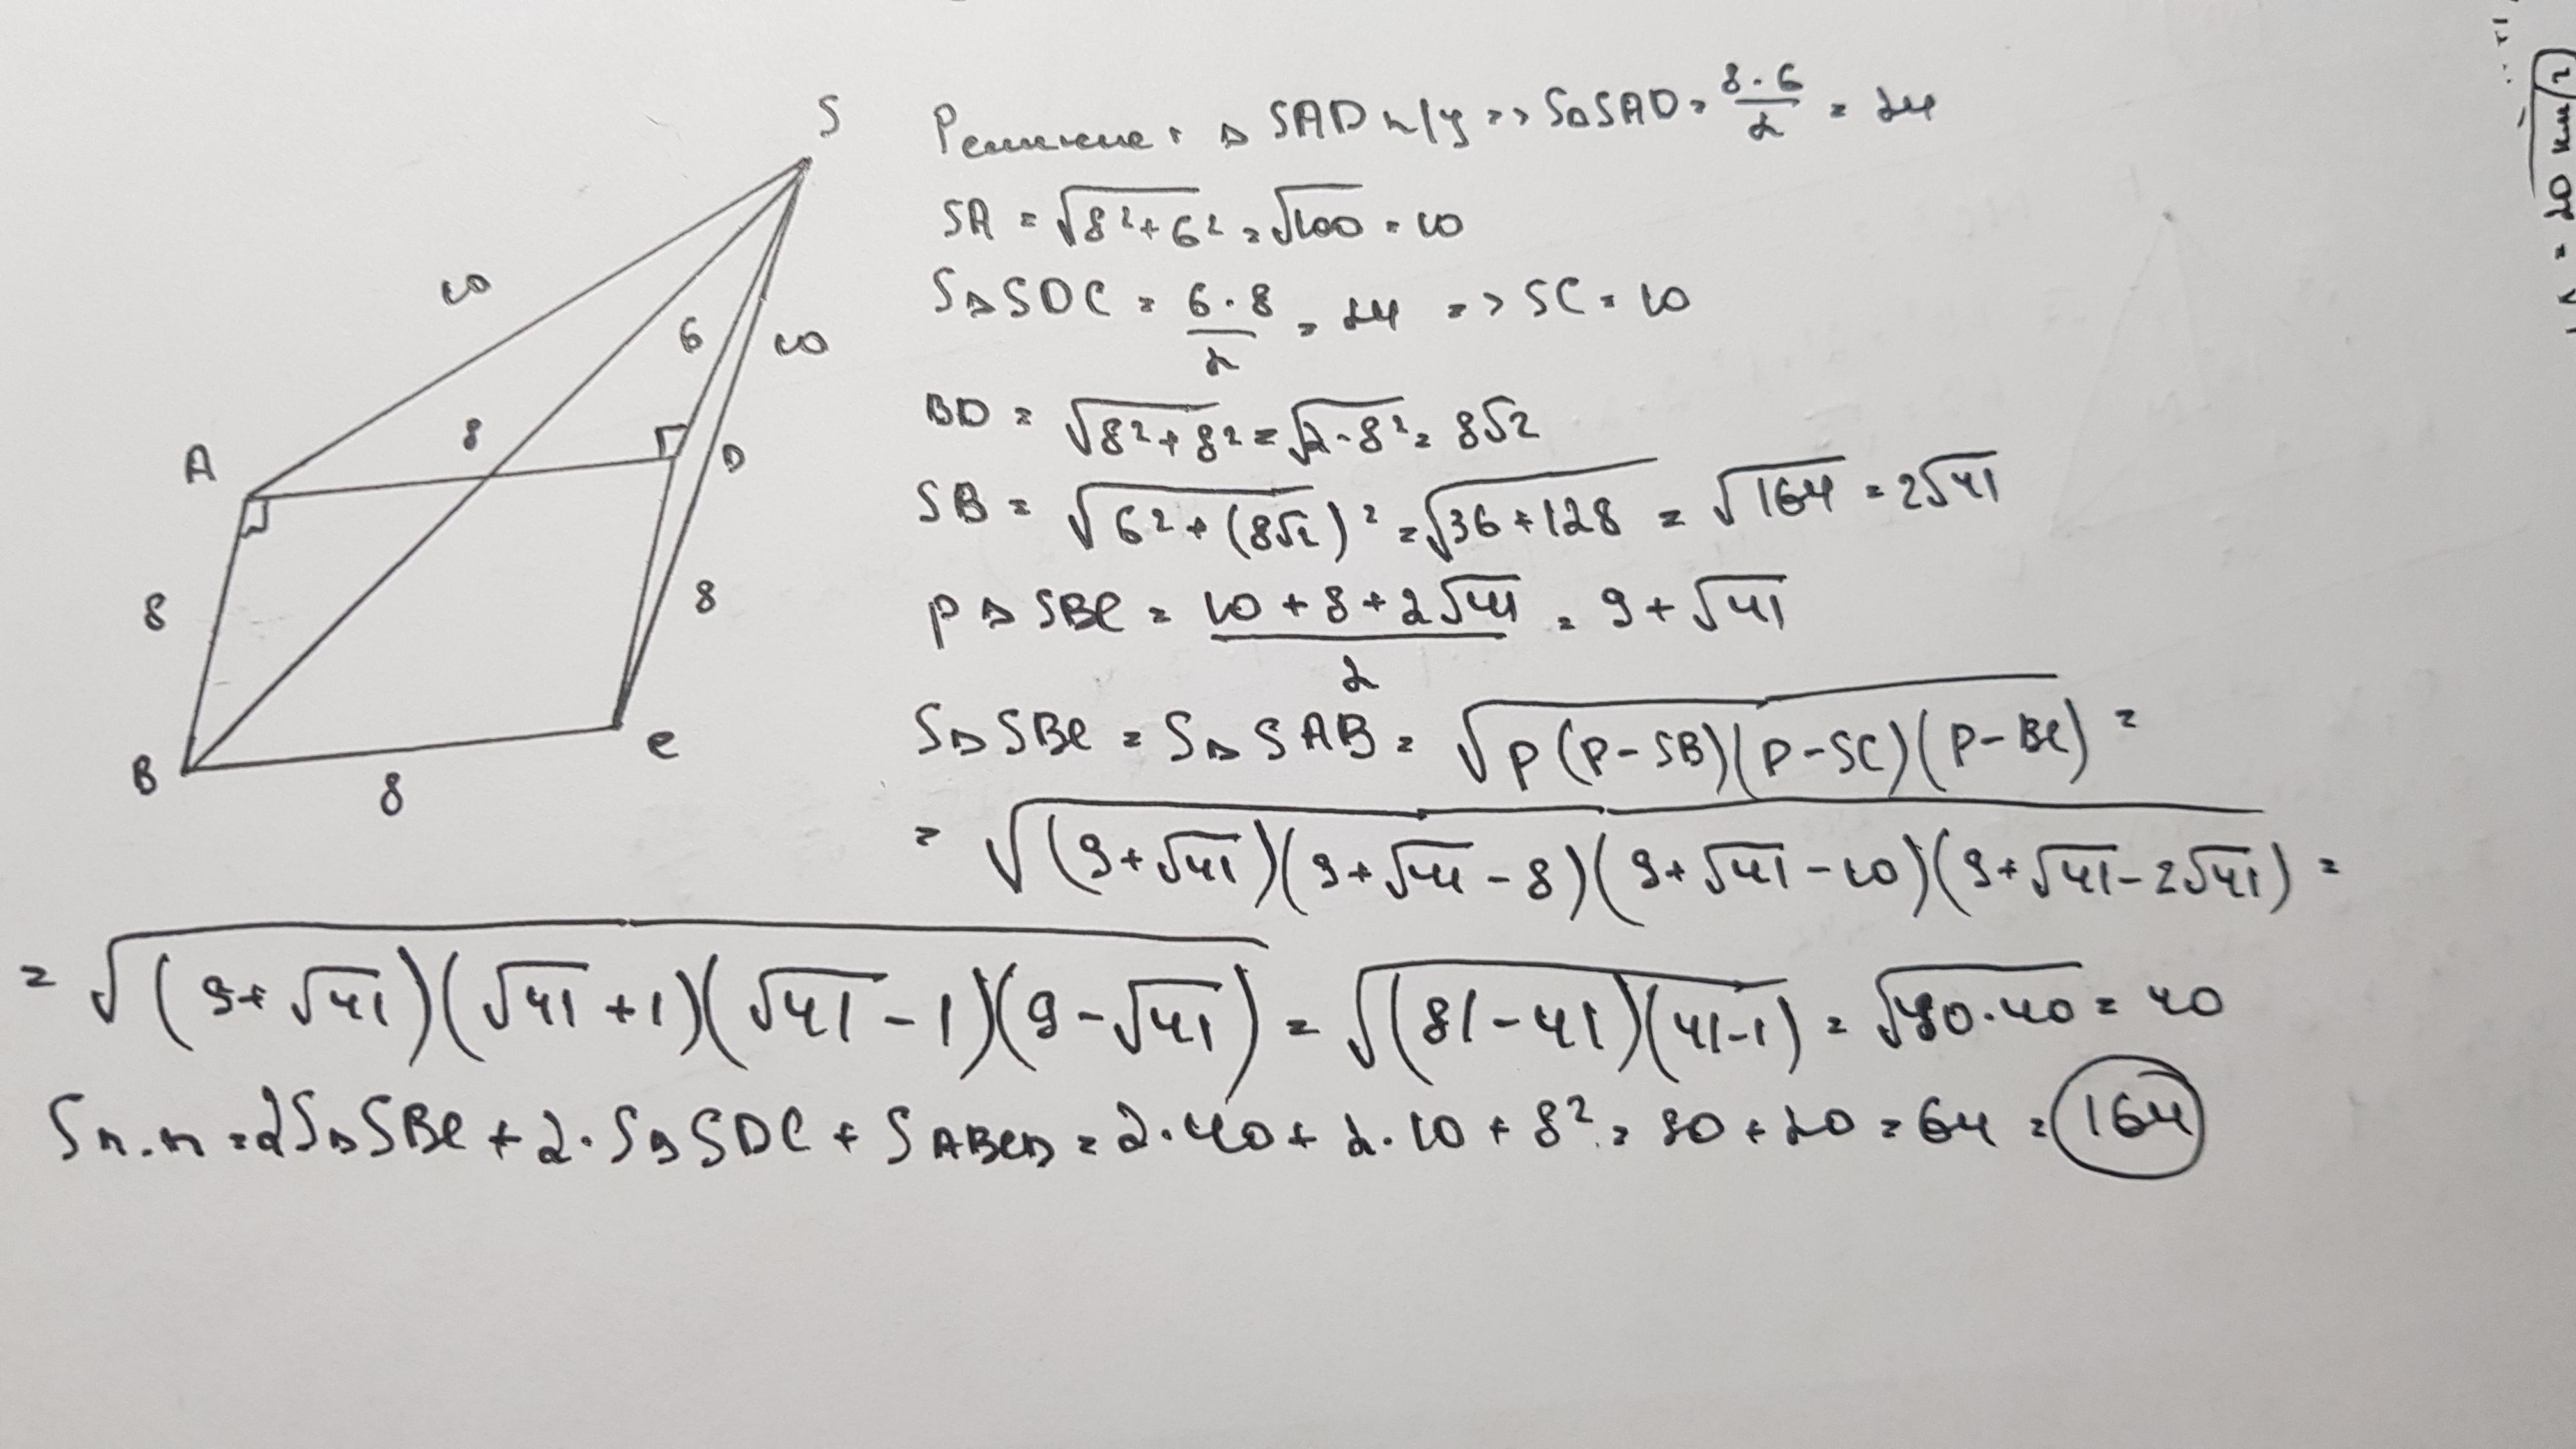 S
10
6
10
8
A
D
8
8
B
C
8
Решение: △ SAD п/у => S△SAD = 8·6/2 = 24
SA = √(8²+6²) = √100 = 10
S△SDC = 6·8/2 = 24 => SC = 10
BD = √(8²+8²) = √(2·8²) = 8√2
SB = √(6²+(8√2)²) = √(36+128) = √164 = 2√41
P△SBC = (10+8+2√41)/2 = 9+√41
S△SBC = S△SAB = √(P(P-SB)(P-SC)(P-BC)) =
= √((9+√41)(9+√41-8)(9+√41-10)(9+√41-2√41)) =
= √((9+√41)(√41+1)(√41-1)(9-√41)) = √((81-41)(41-1)) = √(40·40) = 40
Sп.п = 2S△SBC + 2·S△SDC + SABCD = 2·40 + 2·10 + 8² = 80 + 20 = 64 = 164
= 20 км/